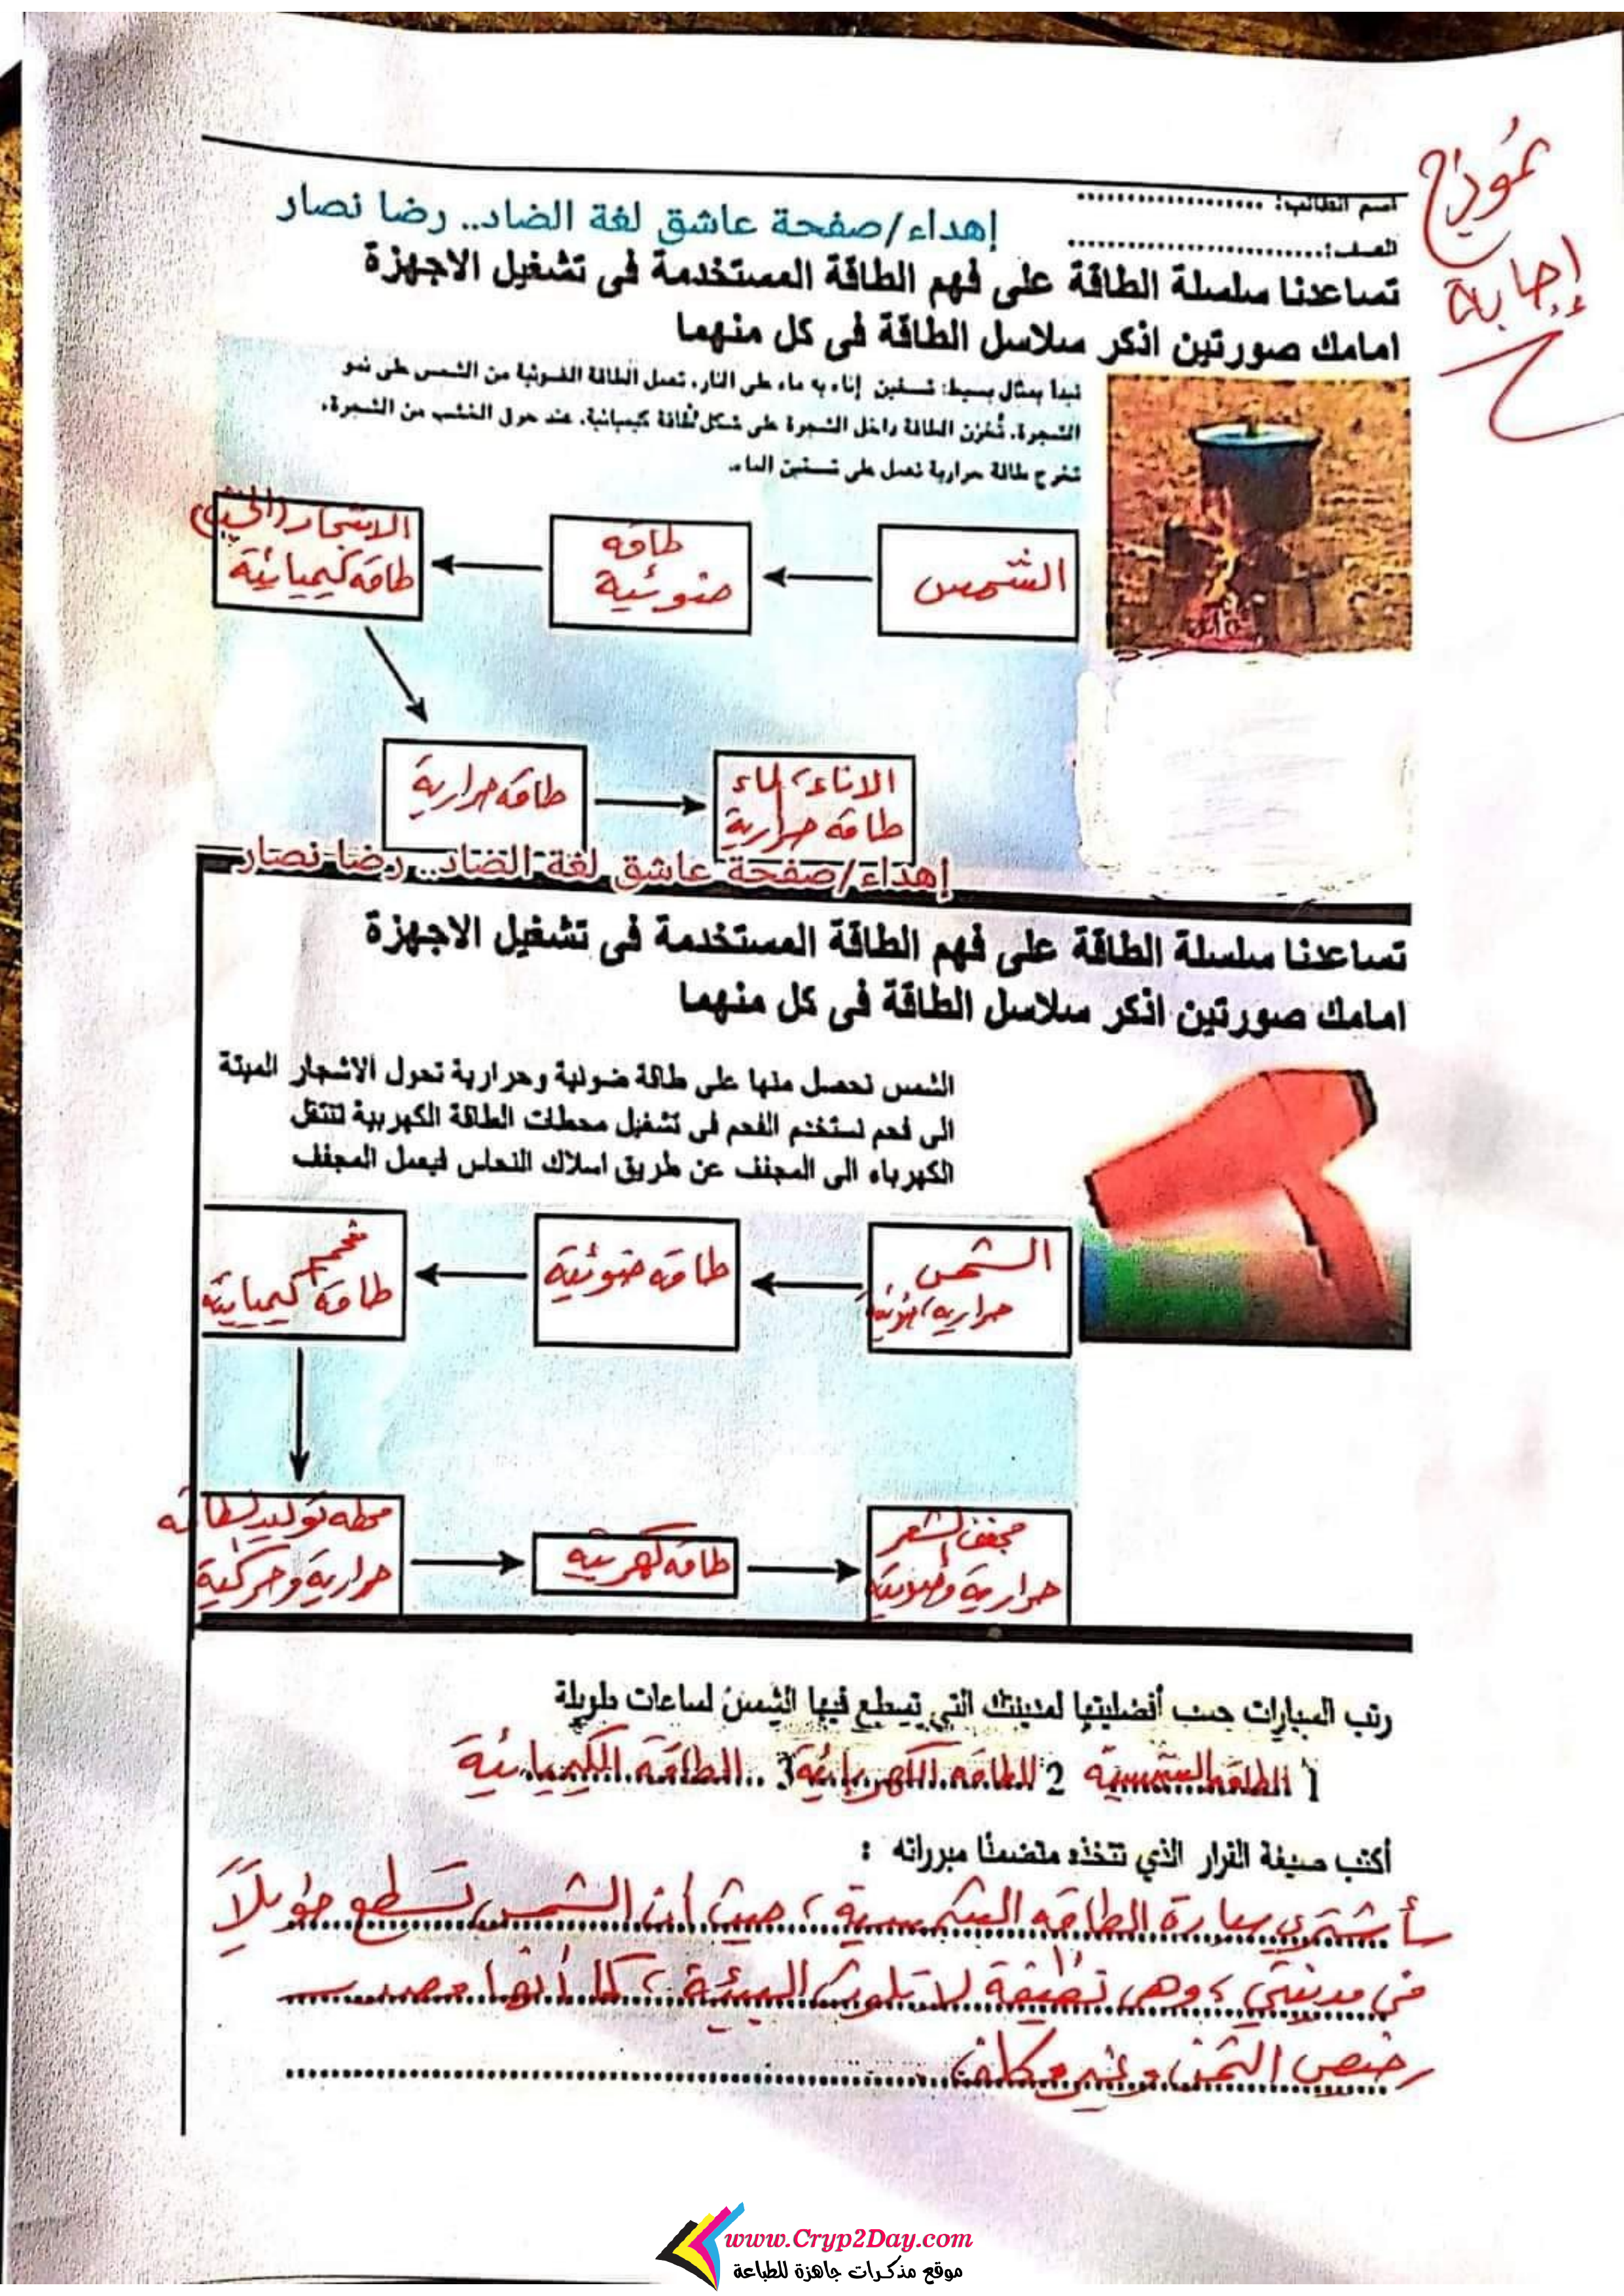 نموذج
إجابة
اسم الطالب: ....................
الصف: ........................
إهداء/صفحة عاشق لغة الضاد.. رضا نصار
تساعدنا سلسلة الطاقة على فهم الطاقة المستخدمة فى تشغيل الاجهزة
امامك صورتين اذكر سلاسل الطاقة فى كل منهما
نبدأ بمثال بسيط: تسخين إناء به ماء على النار. تعمل الطاقة الضوئية من الشمس على نمو
الشجرة. تُخزن الطاقة داخل الشجرة على شكل طاقة كيميائية. عند حرق الخشب من الشجرة،
تخرج طاقة حرارية تعمل على تسخين الماء.
الشمس
طاقه
ضوئية
الاشجار (الخشب)
طاقه كيميائية
طاقه حرارية
الاناء، الماء
طاقه حرارية
إهداء/صفحة عاشق لغة الضاد.. رضا نصار
تساعدنا سلسلة الطاقة على فهم الطاقة المستخدمة فى تشغيل الاجهزة
امامك صورتين اذكر سلاسل الطاقة فى كل منهما
الشمس نحصل منها على طاقة ضوئية وحرارية تحول الاشجار الميتة
الى فحم نستخدم الفحم فى تشغيل محطات الطاقة الكهربية تنتقل
الكهرباء الى المجفف عن طريق اسلاك النحاس ليعمل المجفف
الشمس
حرارية، ضوئية
طاقه ضوئية
فحم
طاقه كيميائية
محطه توليد الطاقه
حرارية وحركية
طاقه كهربية
مجفف الشعر
حرارية وضوئية
رتب السيارات حسب أفضليتها لمدينتك التي تسطع فيها الشمس لساعات طويلة
1 الطاقه الشمسية 2 الطاقه الكهربائية 3 الطاقة الكيميائية
أكتب صيغة القرار الذي تتخذه متضمنا مبرراته :
سأشتري سيارة الطاقه الشمسية، حيث أن الشمس تسطع طويلاً
في مدينتي، وهى نظيفة لا تلوث البيئة، كما أنها مصدر
رخيص الثمن وغير مكلف
www.Cryp2Day.com
موقع مذكرات جاهزة للطباعة